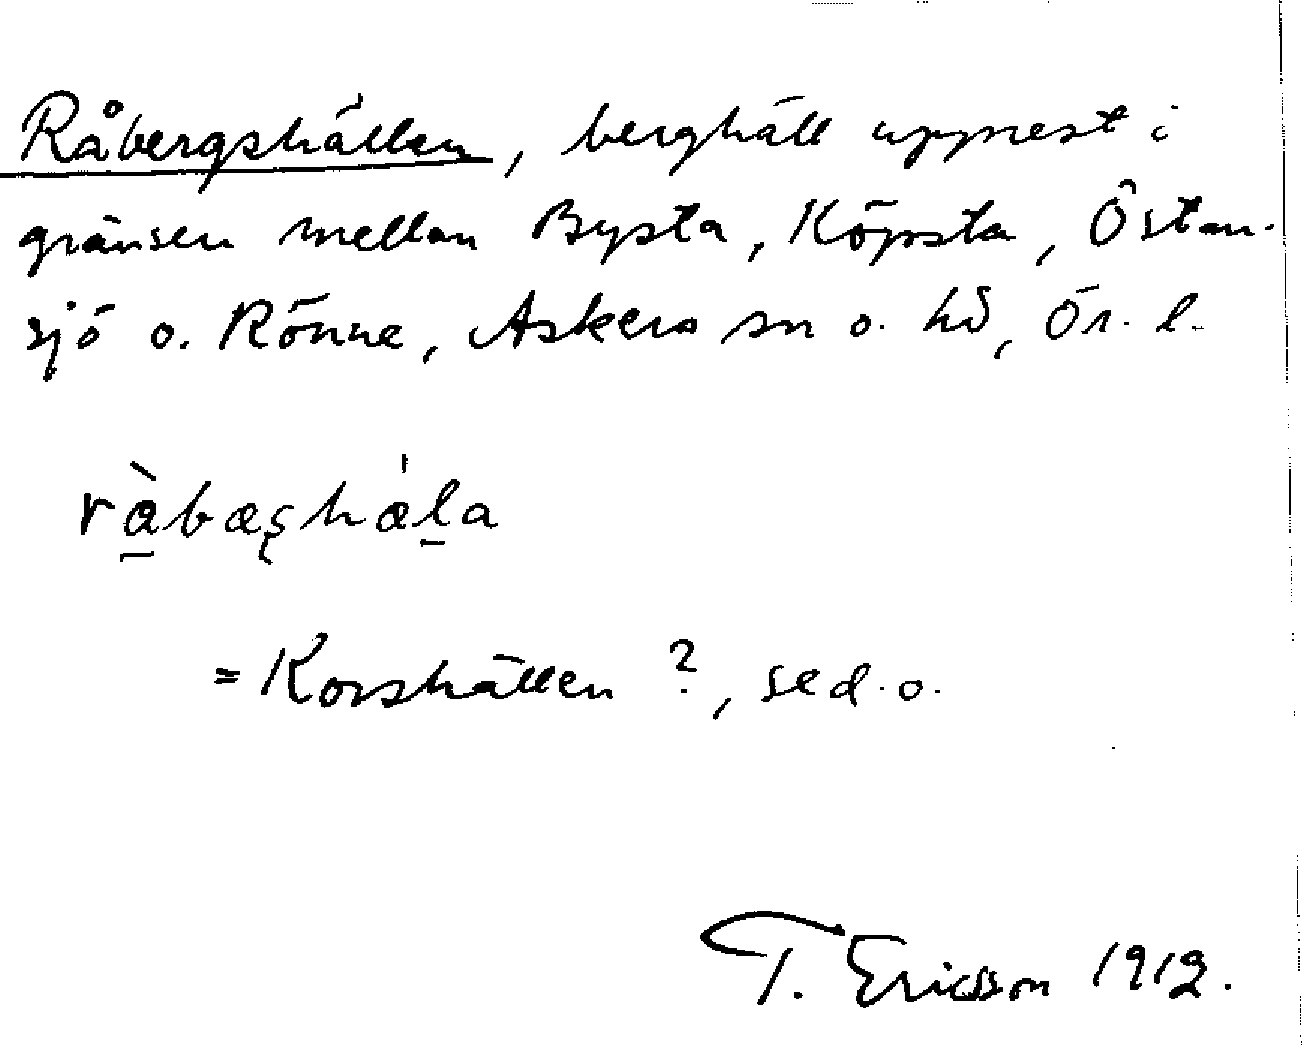 Råbergshällen, berghäll uppnest i
gränsen mellan Bysta, Köpsta, Östan-
sjö o. Rönne, Askers sn o. hd, Ör. l.
= Korshällen ?, se d. o.
T. Ericsson 1912.